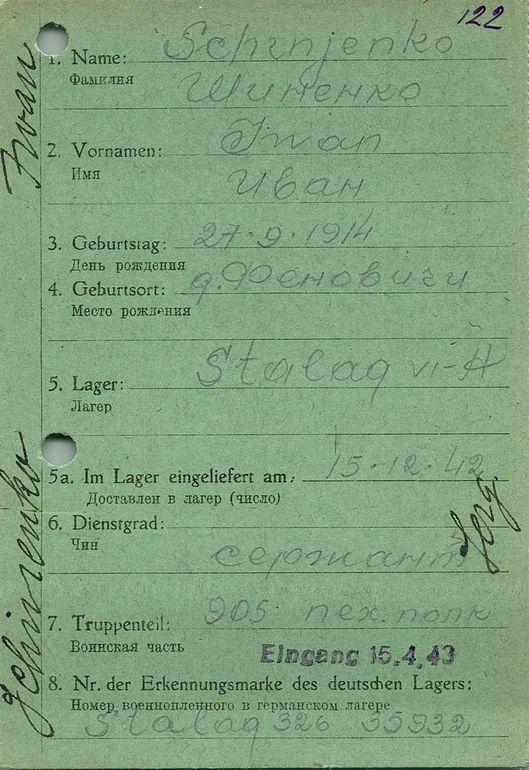 122
1. Name: Schinjenko
Фамилия
Шиненко
2. Vornamen: Iwan
Имя
Иван
3. Geburtstag: 27.9.1914
День рождения
4. Geburtsort: д. Феновичи
Место рождения
5. Lager: Stalag VI-A
Лагер
5a. Im Lager eingeliefert am: 15.12.42
Доставлен в лагер (число)
6. Dienstgrad:
Чин
сержант
Serg.
7. Truppenteil: 905 пех. полк
Воинская часть
Eingang 15.4.43
8. Nr. der Erkennungsmarke des deutschen Lagers:
Номер военнопленного в германском лагере
Stalag 326 35932
Schinenko Iwan